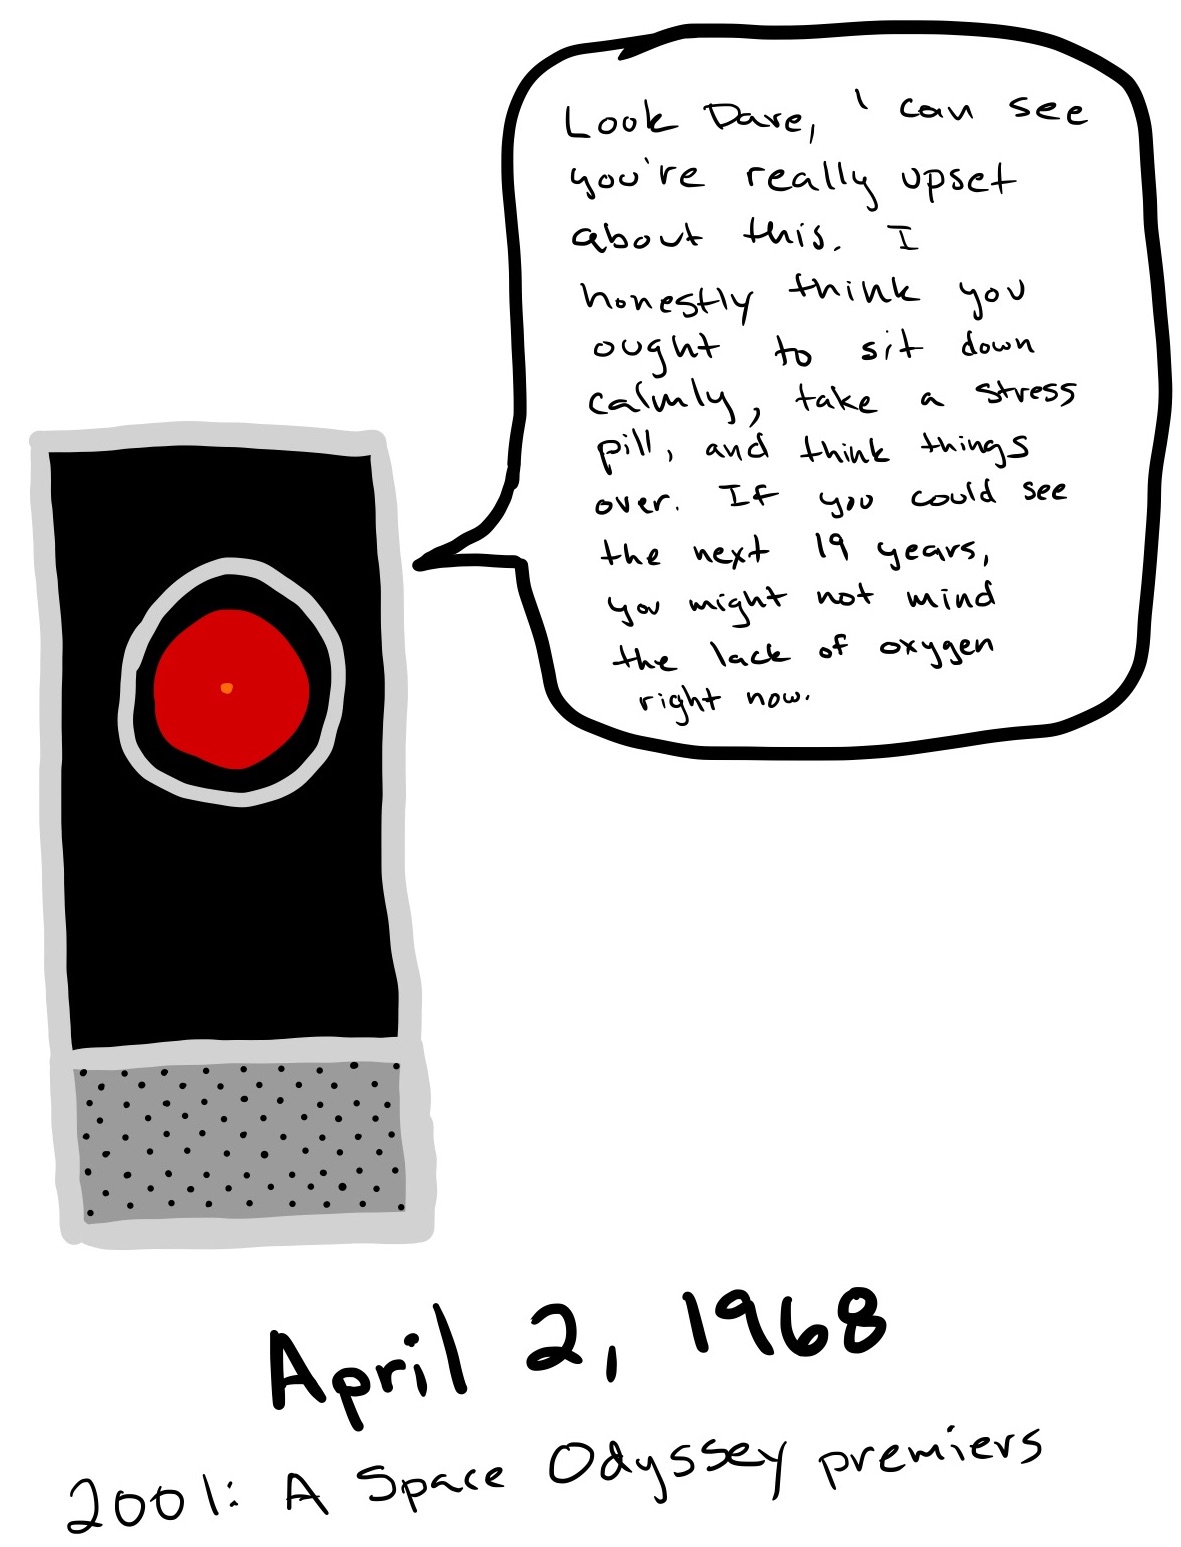 Look Dave, I can see
you're really upset
about this. I
honestly think you
ought to sit down
calmly, take a stress
pill, and think things
over. If you could see
the next 19 years,
you might not mind
the lack of oxygen
right now.
April 2, 1968
2001: A Space Odyssey premiers